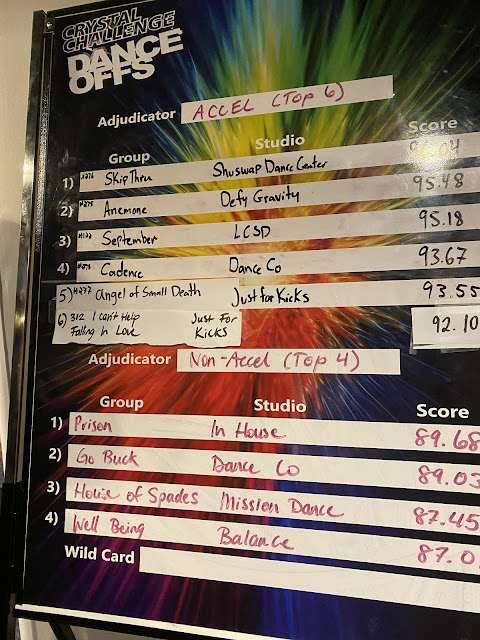 CRYSTAL
CHALLENGE
DANCE
OFFS
Adjudicator ACCEL (Top 6)
Group Studio Score
1) #276 Skip Thru Shuswap Dance Center 96.04
2) #275 Anemone Defy Gravity 95.48
3) September LCSD 95.18
4) Cadence Dance Co 93.67
5) #277 Angel of Small Death Just for Kicks 93.55
6) 312 I Can't Help Just For 92.10
Falling In Love Kicks
Adjudicator Non-Accel (Top 4)
Group Studio Score
1) Prison In House 89.68
2) Go Buck Dance Co 89.03
3) House of Spades Mission Dance 87.45
4) Well Being Balance 87.0
Wild Card